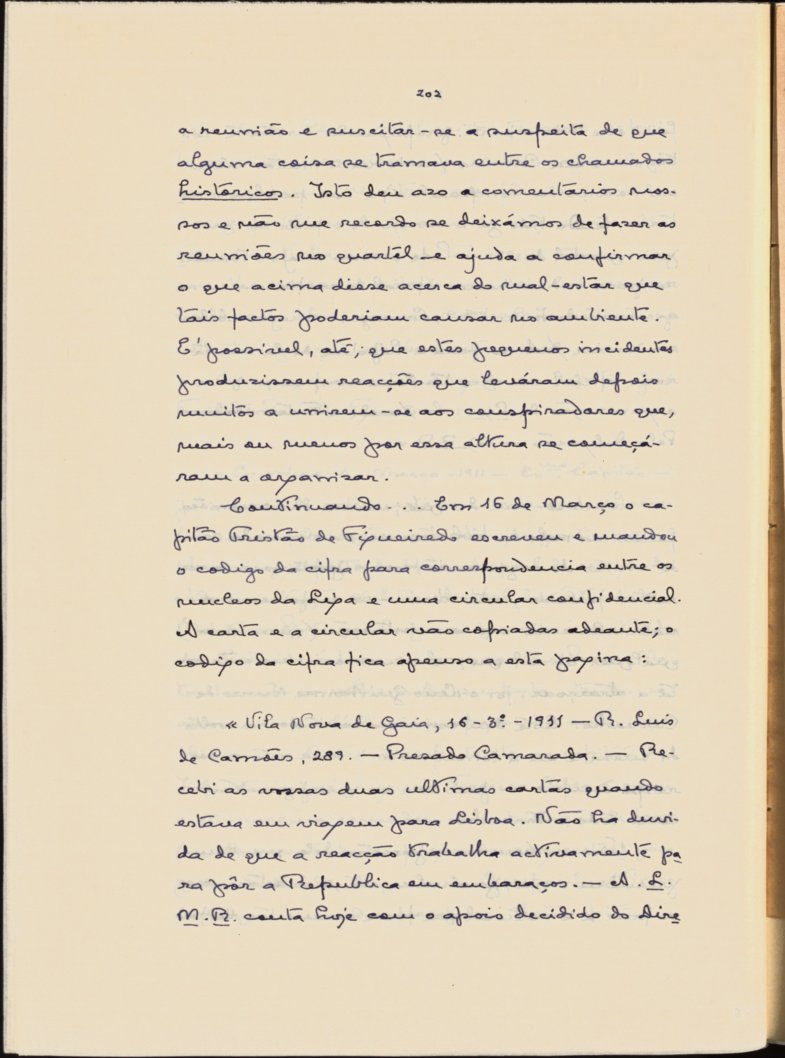 202
a reunião e suscitar-se a suspeita de que
alguma coisa se tramava entre os chamados
históricos. Isto deu azo a comentários nos-
sos e não me recordo se deixámos de fazer as
reuniões no quartel - e ajuda a confirmar
o que acima disse acerca do mal-estar que
tais factos poderiam causar no ambiente.
E' possivel, até, que estes pequenos incidentes
produzissem reacções que leváram depois
muitos a unirem-se aos conspiradores que,
mais ou menos por essa altura se começá-
ram a organisar.
Continuando... Em 16 de Março o ca-
pitão Tristão de Figueiredo escreveu e mandou
o codigo da cifra para correspondencia entre os
nucleos da Liga e uma circular confidencial.
A carta e a circular vão copiadas adeante; o
codigo da cifra fica apenso a esta pagina:
« Vila Nova de Gaia, 16-3º-1911 — R. Luis
de Camões, 289. — Presado Camarada. — Re-
cebi as vossas duas ultimas cartas quando
estava em viagem para Lisboa. Não ha duvi-
da de que a reacção trabalha activamente pa
ra pôr a Republica em embaraços. — A. L.
M. R. conta hoje com o apoio decidido do Dire